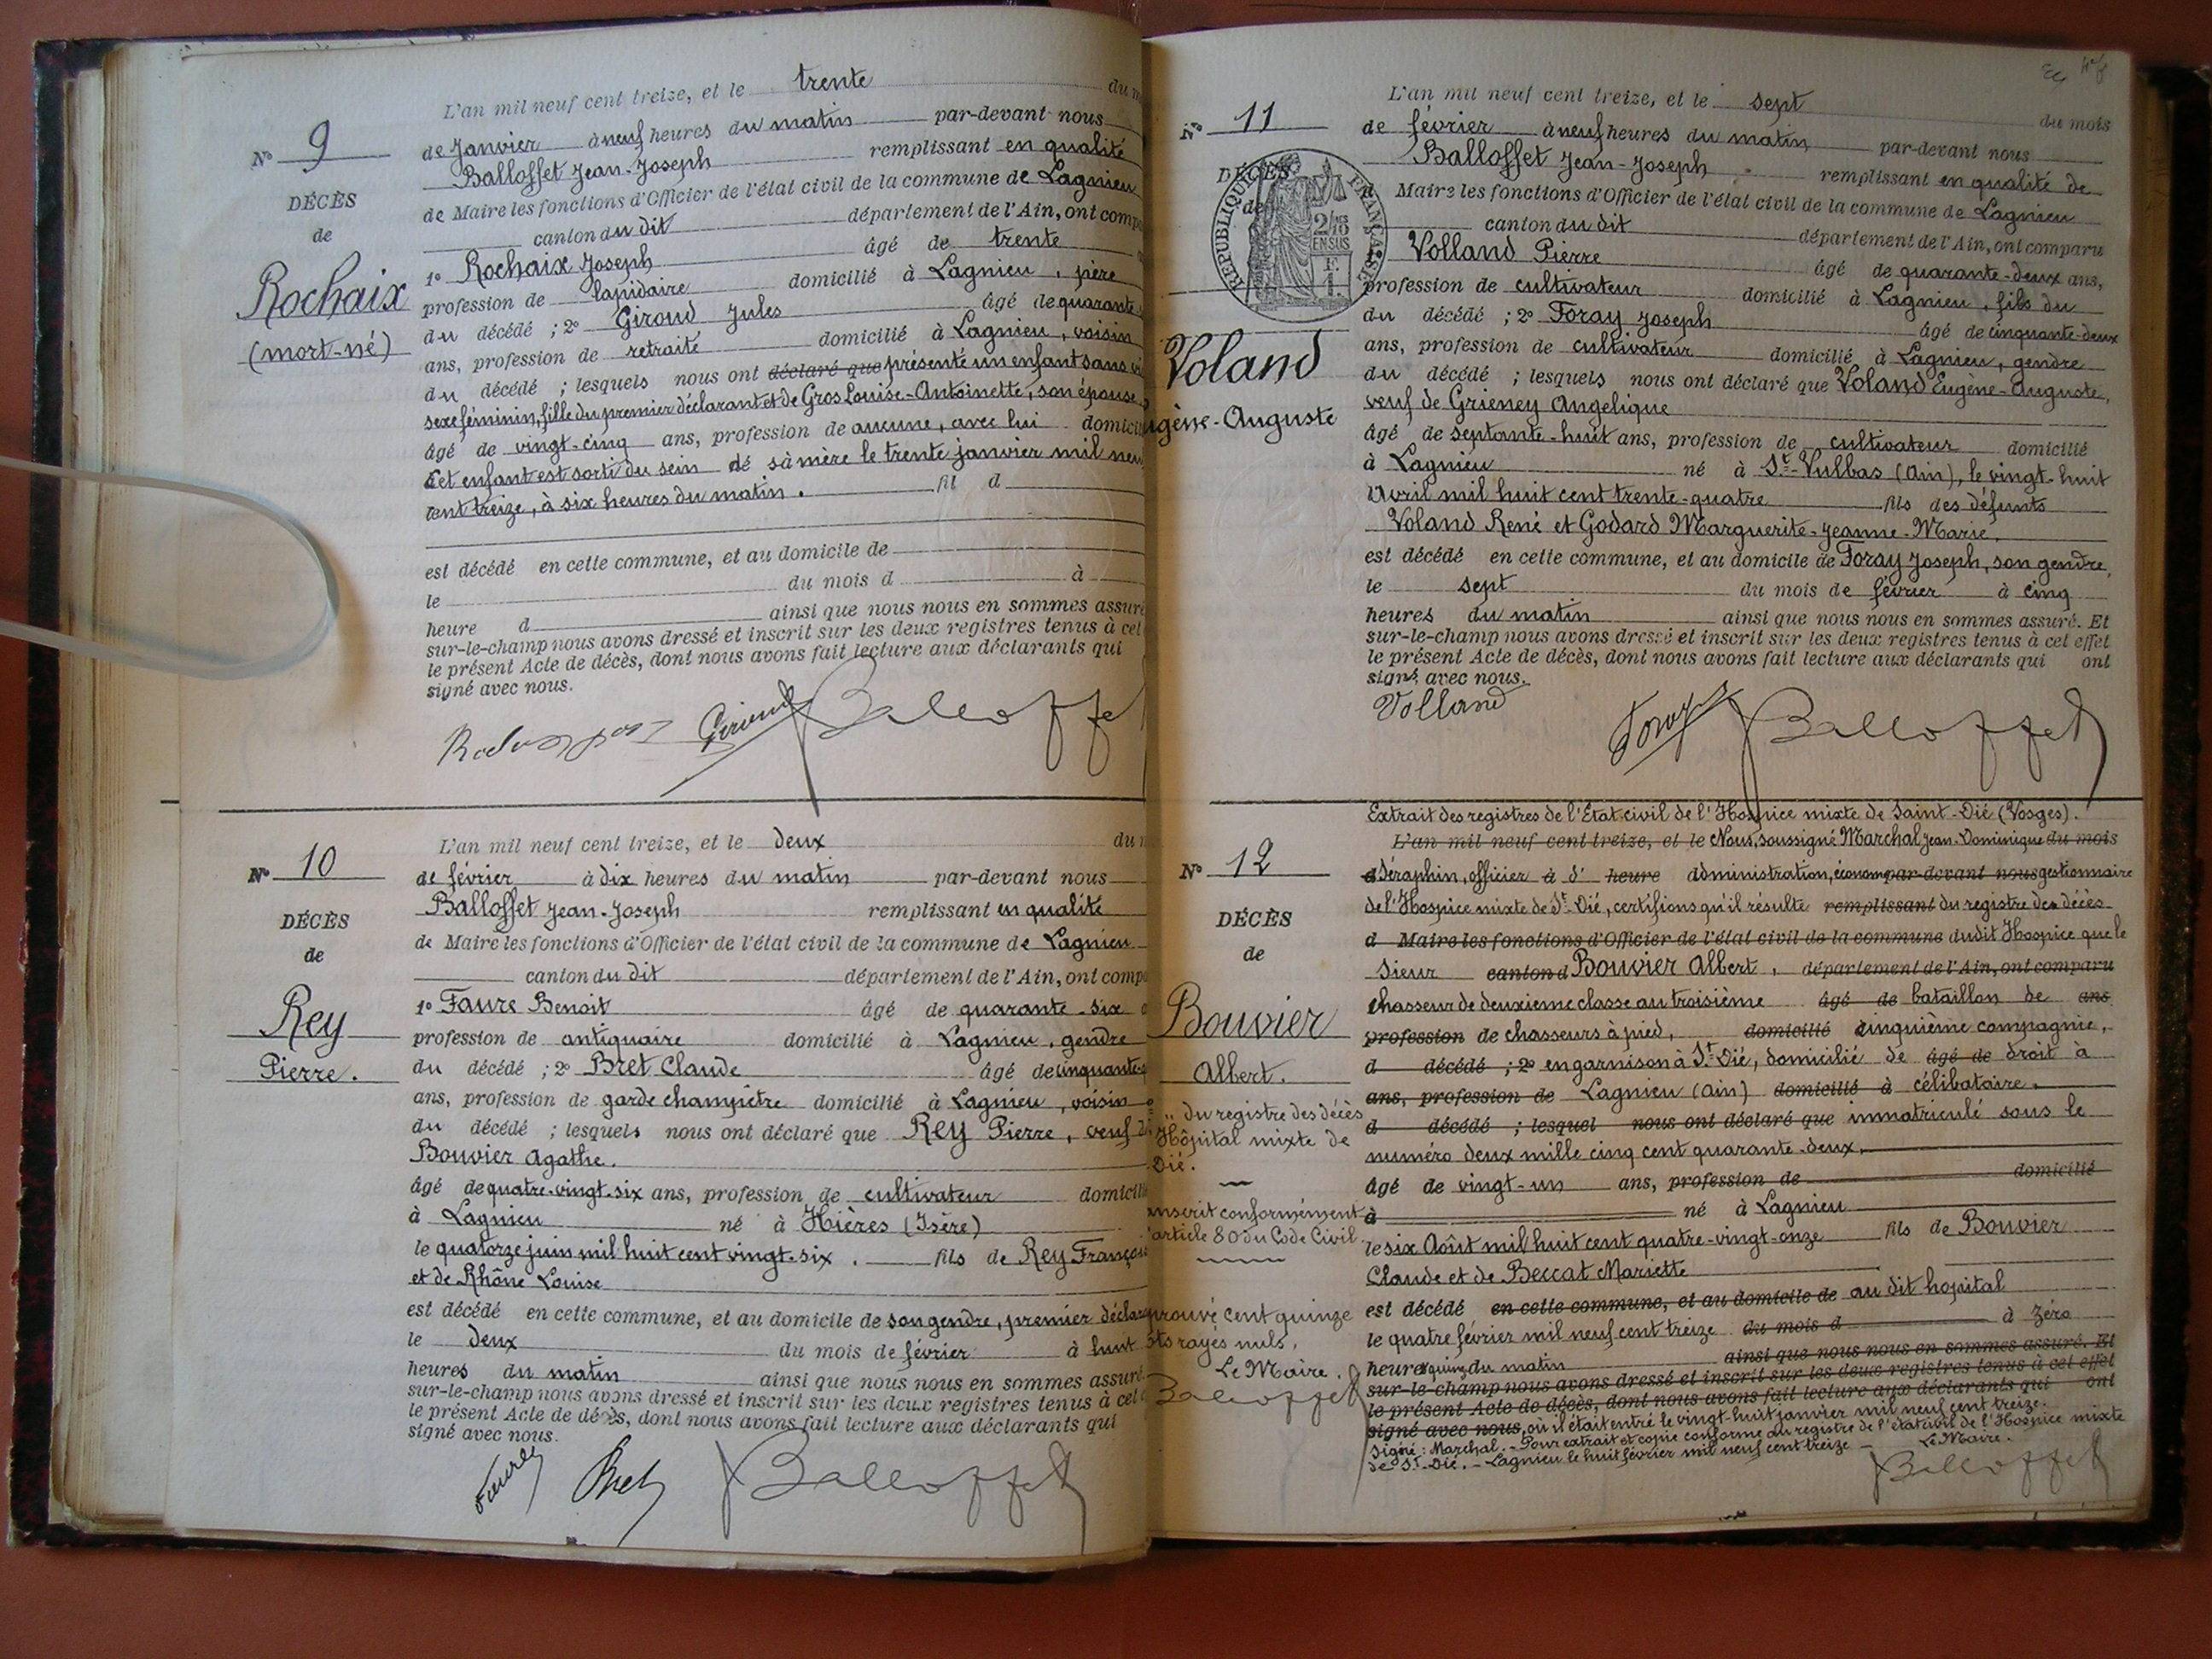 L'an mil neuf cent treize, et le trente du m
N° 9
de Janvier à neuf heures du matin par-devant nous
Balloffet Jean-Joseph remplissant en qualité
DÉCÈS
de Maire les fonctions d'Officier de l'état civil de la commune de Lagnieu
de
canton du dit département de l'Ain, ont comp
Rochaix
1° Rochaix Joseph âgé de trente
profession de lapidaire domicilié à Lagnieu, père
(mort-né)
du décédé ; 2° Giroud Jules âgé de quarante
ans, profession de retraité domicilié à Lagnieu, voisin
du décédé ; lesquels nous ont déclaré que présenté un enfant sans vi
sexe féminin, fille du premier déclarant et de Gros Louise-Antoinette, son épouse,
âgé de vingt-cinq ans, profession de aucune, avec lui domicil
Cet enfant est sorti du sein de sa mère le trente janvier mil neu
cent treize, à six heures du matin. fil d
est décédé en cette commune, et au domicile de
le du mois d à
heure d ainsi que nous nous en sommes assuré
sur-le-champ nous avons dressé et inscrit sur les deux registres tenus à cet
le présent Acte de décès, dont nous avons fait lecture aux déclarants qui
signé avec nous.
Giroud Balloffet
L'an mil neuf cent treize, et le deux du m
N° 10
de février à dix heures du matin par-devant nous
Balloffet Jean-Joseph remplissant en qualité
DÉCÈS
de Maire les fonctions d'Officier de l'état civil de la commune de Lagnieu
de
canton du dit département de l'Ain, ont comp
1° Faure Benoit âgé de quarante-six
Rey
profession de antiquaire domicilié à Lagnieu, gendre
Pierre.
du décédé ; 2° Bret Claude âgé de cinquante
ans, profession de garde champêtre domicilié à Lagnieu, voisin
du décédé ; lesquels nous ont déclaré que Rey Pierre, veuf
Bouvier Agathe.
âgé de quatre-vingt-six ans, profession de cultivateur domicili
à Lagnieu né à Hières (Isère)
le quatorze juin mil huit cent vingt-six. fils de Rey Françoi
et de Rhône Louise
est décédé en cette commune, et au domicile de son gendre, premier déclar
le deux du mois de février à huit
heures du matin ainsi que nous nous en sommes assuré
sur-le-champ nous avons dressé et inscrit sur les deux registres tenus à cet
le présent Acte de décès, dont nous avons fait lecture aux déclarants qui
signé avec nous.
Faure Bret Balloffet
L'an mil neuf cent treize, et le sept du mois
N° 11
de février à neuf heures du matin par-devant nous
Balloffet Jean-Joseph remplissant en qualité de
DÉCÈS
Maire les fonctions d'Officier de l'état civil de la commune de Lagnieu
de
RÉPUBLIQUE FRANÇAISE
2/10
EN SUS
F.
1.
canton du dit département de l'Ain, ont comparu
Volland Pierre âgé de quarante-deux ans,
profession de cultivateur domicilié à Lagnieu, fils du
Voland
du décédé ; 2° Foray Joseph âgé de cinquante-deux
ans, profession de cultivateur domicilié à Lagnieu, gendre
du décédé ; lesquels nous ont déclaré que Voland Eugène-Auguste,
gène-Auguste
veuf de Grieney Angelique
âgé de septante-huit ans, profession de cultivateur domicilié
à Lagnieu né à St-Vulbas (Ain), le vingt-huit
Avril mil huit cent trente-quatre fils des défunts
Voland René et Godard Marguerite-Jeanne-Marie.
est décédé en cette commune, et au domicile de Foray Joseph, son gendre,
le sept du mois de février à cinq
heures du matin ainsi que nous nous en sommes assuré. Et
sur-le-champ nous avons dressé et inscrit sur les deux registres tenus à cet effet
le présent Acte de décès, dont nous avons fait lecture aux déclarants qui ont
signé avec nous.
Volland Foray Balloffet
Extrait des registres de l'Etat civil de l'Hospice mixte de Saint-Dié (Vosges).
L'an mil neuf cent treize, et le Nous, soussigné Marchal Jean-Dominique du mois
N° 12
d Séraphin, officier à d' heure administration, économe par-devant nous gestionnaire
de l'Hospice mixte de St-Dié, certifions qu'il résulte remplissant du registre des décès
DÉCÈS
d Maire les fonctions d'Officier de l'état civil de la commune dudit Hospice que le
de
Sieur canton d Bouvier Albert, département de l'Ain, ont comparu
chasseur de deuxième classe au troisième âgé de bataillon de ans
Bouvier
profession de chasseurs à pied, domicilié cinquième compagnie,
d décédé ; 2° en garnison à St-Dié, domicilié de âgé de droit à
Albert.
ans, profession de Lagnieu (Ain) domicilié à célibataire.
du registre des décès
d décédé ; lesquel nous ont déclaré que immatriculé sous le
Hôpital mixte de
numéro deux mille cinq cent quarante-deux,
Dié.
âgé de vingt-un ans, profession de domicilié
nscrit conformément
à né à Lagnieu
article 80 du Code Civil.
le six Août mil huit cent quatre-vingt-onze fils de Bouvier
Claude et de Beccat Mariette
prouvé cent quinze
est décédé en cette commune, et au domicile de au dit hopital
ots rayés nuls,
le quatre février mil neuf cent treize du mois d à zéro
Le Maire.
heure quinze du matin ainsi que nous nous en sommes assuré. Et
Balloffet
sur-le-champ nous avons dressé et inscrit sur les deux registres tenus à cet effet
le présent Acte de décès, dont nous avons fait lecture aux déclarants qui ont
signé avec nous, où il était entré le vingt-huit janvier mil neuf cent treize.
Signé : Marchal. - Pour extrait et copie conforme du registre de l'état civil de l'Hospice mixte
de St-Dié. - Lagnieu le huit février mil neuf cent treize - Le Maire.
Balloffet